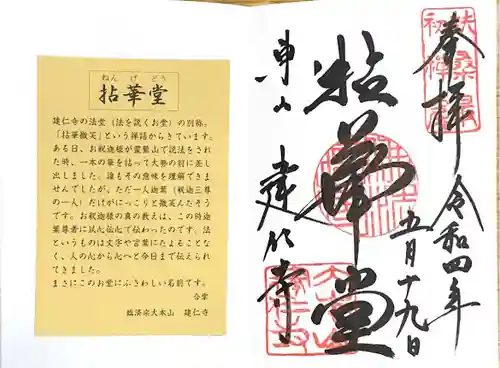 ねんげどう
拈華堂
建仁寺の法堂(法を説くお堂)の別格。
「拈華微笑」という禅語からきています。
ある日、お釈迦様が霊鷲山で説法をされ
た時、一本の華を拈って大勢の前に差し
出しました。誰もその意味を理解できま
せんでしたが、ただ一人迦葉(釈迦三尊
の一人)だけがにっこりと微笑んだそう
です。お釈迦様の真の教えは、この時迦
葉尊者に以心伝心で伝わったのです。法
というものは文字や言葉にたよることな
く、人の心から心へと今日まで伝えられ
てきました。
まさにこのお堂にふさわしい名前です。
合掌
臨済宗大本山 建仁寺
奉拝
令和四年
五月十九日
拈華堂
東山 建仁寺
扶桑最
初禅